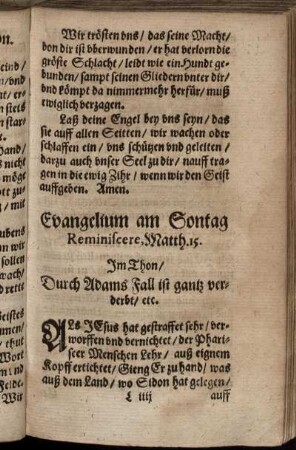 Wir trösten vns / das seine Macht /
von dir ist vberwunden / er hat verlorn die
gröste Schlacht / leidt wie ein Hundt ge-
bunden / sampt seinen Gliedern vnter dir /
vnd kömpt da nimmermehr herfür / muß
ewiglich verzagen.
Laß deine Engel bey vns seyn / das
sie auff allen Seitten / wir wachen oder
schlaffen ein / vns schützen vnd geleiten /
darzu auch vnser Seel zu dir / nauff tra-
gen in die ewig Zihr / wenn wir den Geist
auffgeben. Amen.
Evangelium am Sontag
Reminiscere, Matth. 15.
Im Thon /
Durch Adams Fall ist gantz ver-
derbt / etc.
ALs JEsus hat gestraffet sehr / ver-
worffen vnd vernichtet / der Phari-
seer Menschen Lehr / auß eignem
Kopff ertichtet / Gieng Er zu hand / was
auß dem Land / wo Sidon hat gelegen /
L iiij auff